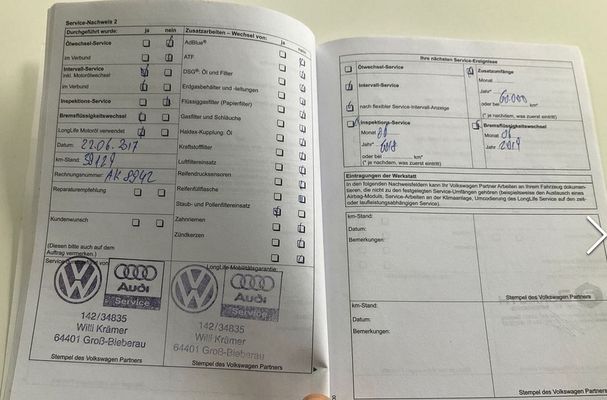 Service-Nachweis 2
Durchgeführt wurde: ja nein
Ölwechsel-Service
im Verbund
Intervall-Service
inkl. Motorölwechsel
im Verbund
Inspektions-Service
Bremsflüssigkeitswechsel
LongLife Motoröl verwendet
Datum: 22.06.2017
km-Stand:
Rechnungsnummer:
Reparaturempfehlung
Kundenwunsch
(Diesen bitte auch auf dem
Auftrag vermerken.)
Zusatzarbeiten – Wechsel von: ja nein
AdBlue®
ATF
DSG®: Öl und Filter
Erdgasbehälter und -leitungen
Flüssiggasfilter (Papierfilter)
Gasfilter und Schläuche
Haldex-Kupplung: Öl
Kraftstofffilter
Luftfiltereinsatz
Reifendrucksensoren
Reifenfüllflasche
Staub- und Pollenfiltereinsatz
Zahnriemen
Zündkerzen
LongLife Mobilitätsgarantie:
Audi
Service
142/34835
Willi Krämer
64401 Groß-Bieberau
Stempel des Volkswagen Partners
Audi
Service
142/34835
Willi Krämer
64401 Groß-Bieberau
Stempel des Volkswagen Partners
Ihre nächsten Service-Ereignisse
Ölwechsel-Service
Intervall-Service
nach flexibler Service-Intervall-Anzeige
Inspektions-Service
Monat
Jahr*
oder bei km*
(* je nachdem, was zuerst eintritt)
Zusatzumfänge
Monat
Jahr*
oder bei 60.000 km*
(* je nachdem, was zuerst eintritt)
Bremsflüssigkeitswechsel
Monat
Jahr 2019
Eintragungen der Werkstatt
In den folgenden Nachweisfeldern kann Ihr Volkswagen Partner Arbeiten an Ihrem Fahrzeug dokumen-
tieren, die nicht zu den festgelegten Service-Umfängen gehören (beispielsweise den Austausch eines
Airbag-Moduls, Service-Arbeiten an der Klimaanlage, Umcodierung des LongLife Service auf den zeit-
oder laufleistungsabhängigen Service).
km-Stand:
Datum:
Bemerkungen:
Stempel des Volkswagen Partners
km-Stand:
Datum:
Bemerkungen:
Stempel des Volkswagen Partners